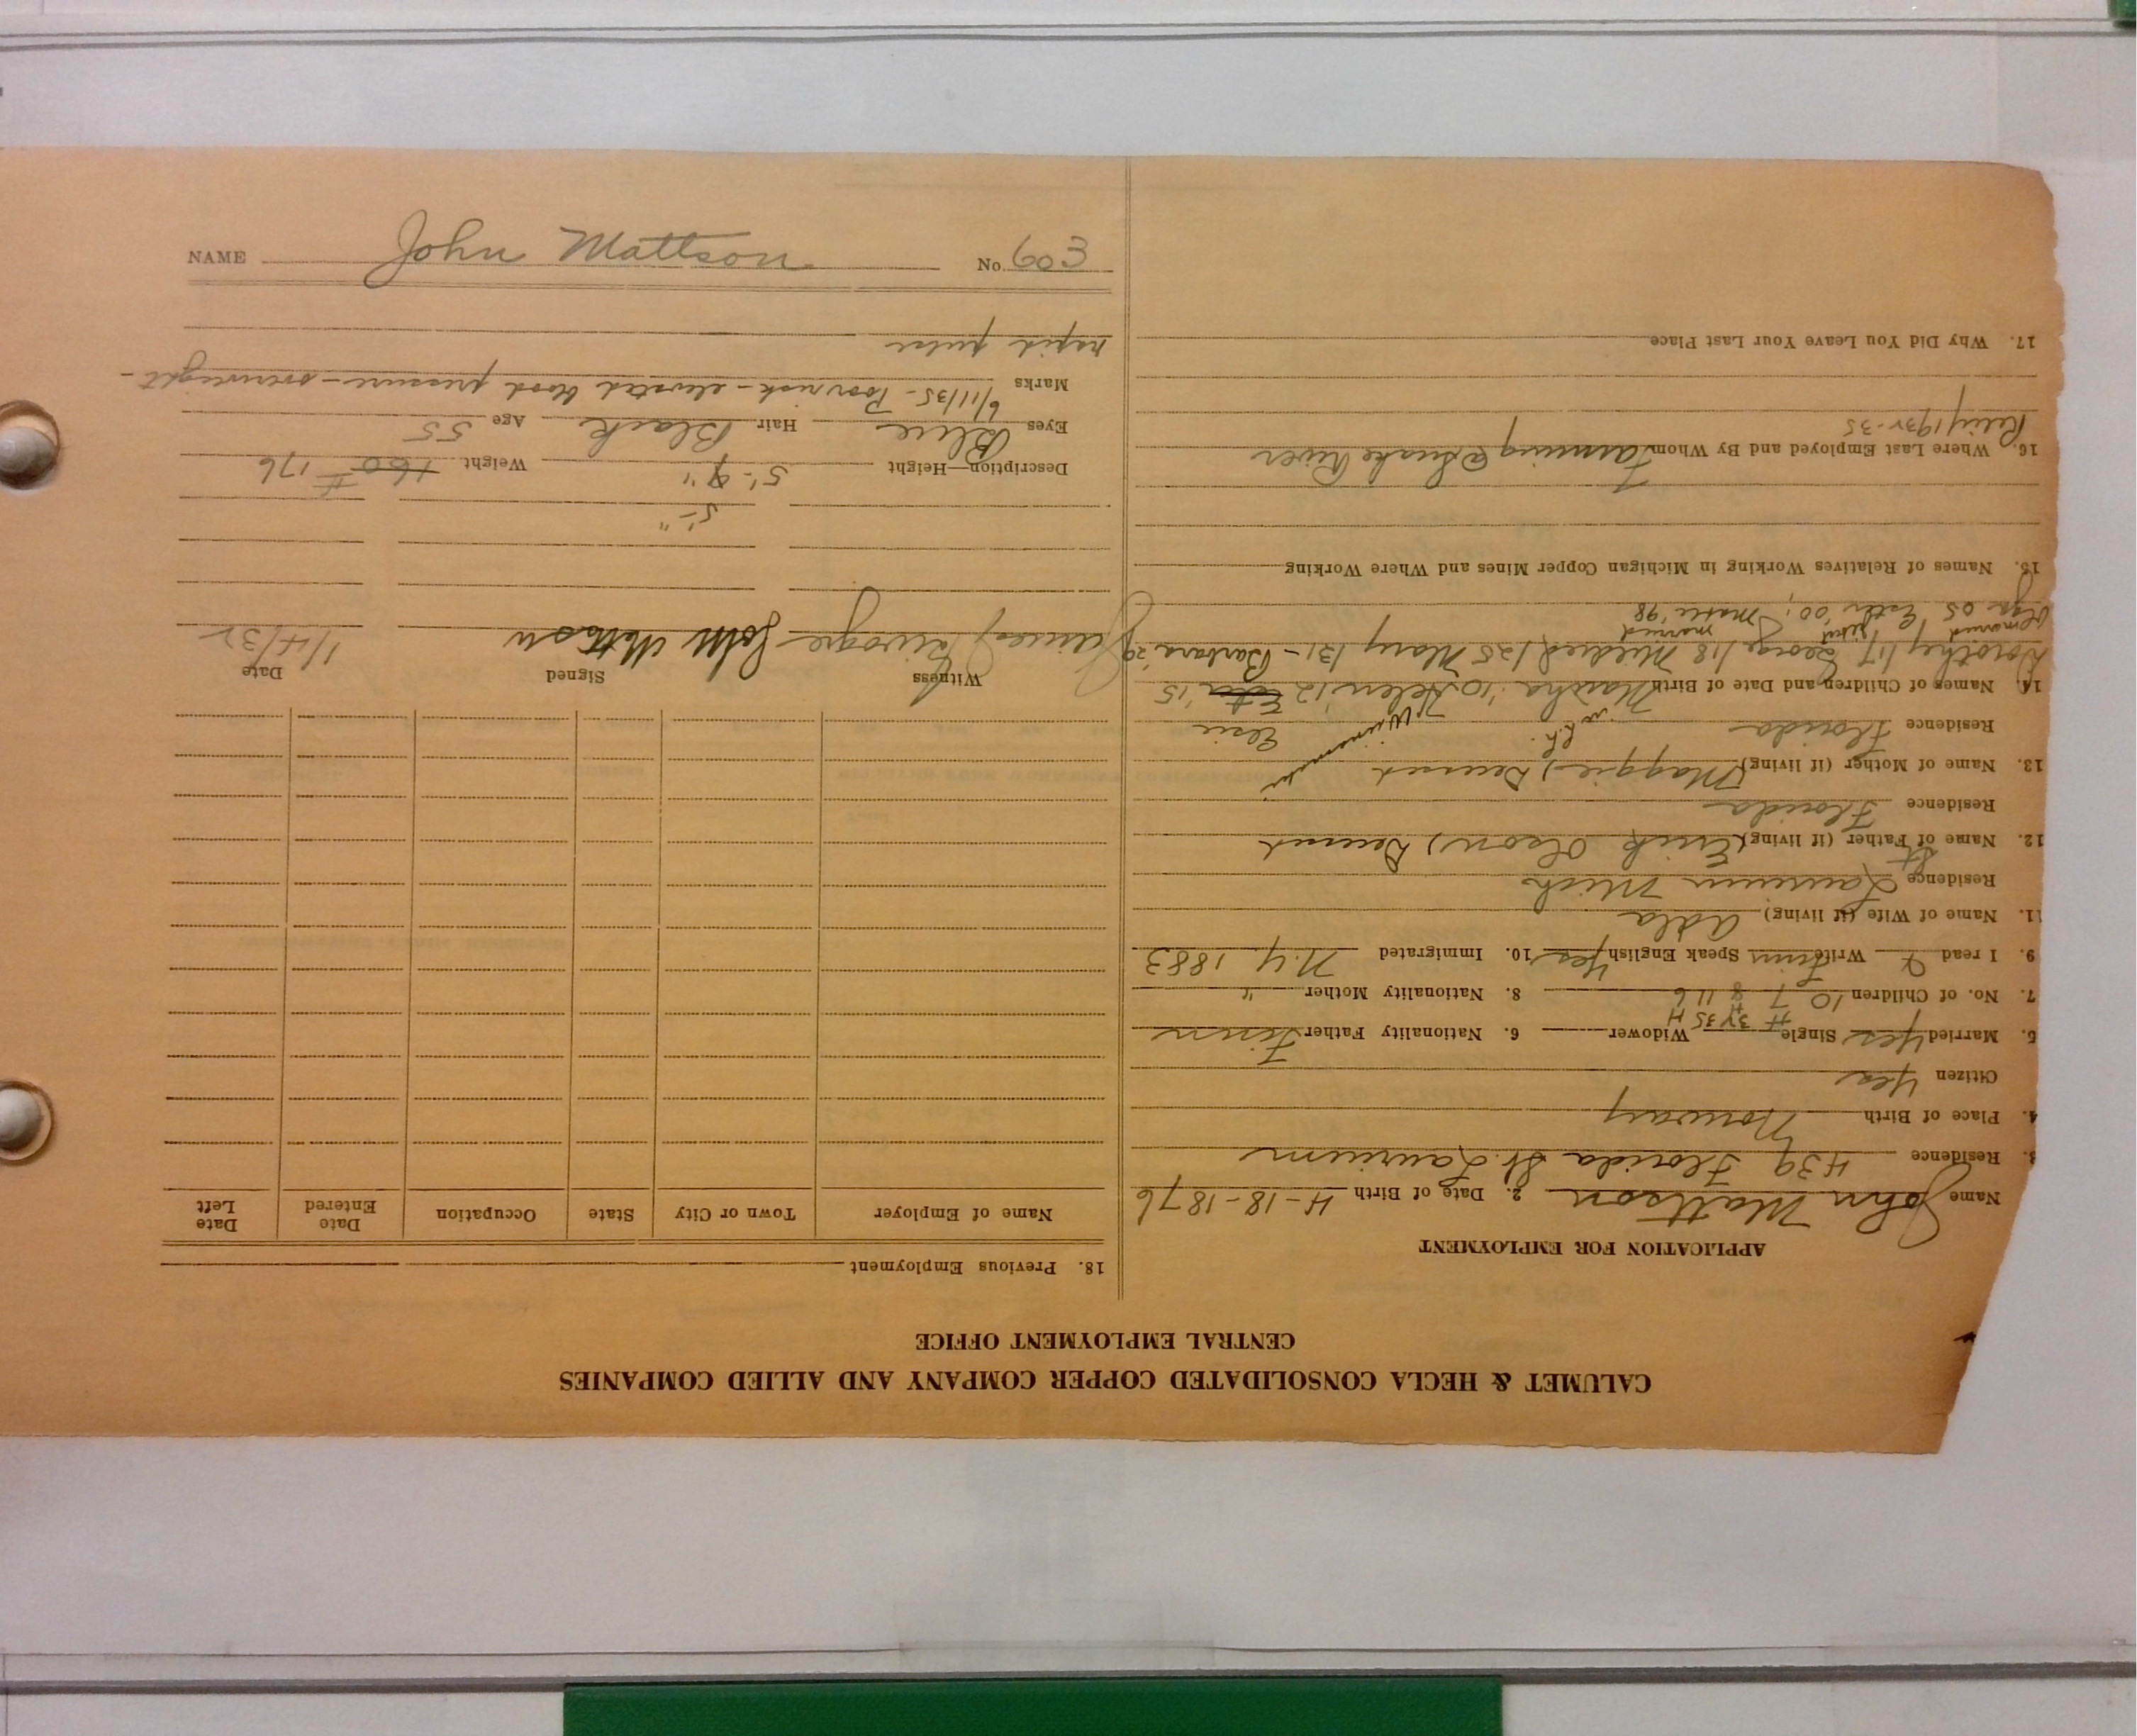 CALUMET & HECLA CONSOLIDATED COPPER COMPANY AND ALLIED COMPANIES
CENTRAL EMPLOYMENT OFFICE
APPLICATION FOR EMPLOYMENT
Name John Mattson 2. Date of Birth 4-18-1876
3. Residence 439 Florida St. Laurium
4. Place of Birth Norway
Citizen Yes
5. Married Yes Single Widower 6. Nationality Father Finn
7. No. of Children 10 7 8 11 6 8. Nationality Mother "
9. I read Write Finn Speak English Yes 10. Immigrated N.Y. 1883
11. Name of Wife (if living) Adla
Residence Laurium Mich
12. Name of Father (if living) (Erick Olson) Decensed
Residence Florida St
13. Name of Mother (if living) (Maggie) Decensed
Residence Florida
Elsie
14. Names of Children and Date of Birth '10 Helen '12 '15
Dorothy /17 George /18 Mildred /25 Mary /31 - Barbara '29
married married
Olga 05 Esther '00; '98
15. Names of Relatives Working in Michigan Copper Mines and Where Working
16. Where Last Employed and By Whom Farming @ Snake River
1934-35
17. Why Did You Leave Your Last Place
18. Previous Employment
Name of Employer Town or City State Occupation Date Entered Date Left
Witness Signed Date
James John Mattson 1/4/32
5'-"
Description—Height 5'-9" Weight 160# 176
Eyes Blue Hair Black Age 55
Marks 6/11/35 - Poor risk - elevated blood pressure - overweight -
rapid pulse
NAME John Mattson No. 603